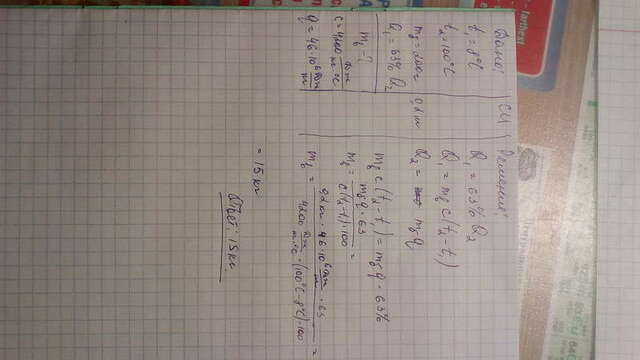 Дано:
t₁ = 8°C
t₂ = 100°C
mδ = 200г
Q₁ = 63% Q₂
mв - ?
c = 4200 Дж/кг·°C
q = 46·10⁶ Дж/кг
СИ
0,2 кг
Решение:
Q₁ = 63% Q₂
Q₁ = mв c (t₂ - t₁)
Q₂ = mδ q
mв c (t₂ - t₁) = mδ q · 63%
mв = mδ q · 63 / c(t₂ - t₁) · 100 =
mв = 0,2 кг · 46·10⁶ Дж/кг · 63 / 4200 Дж/кг·°C · (100°C - 8°C) · 100 =
= 15 кг
Ответ: 15 кг